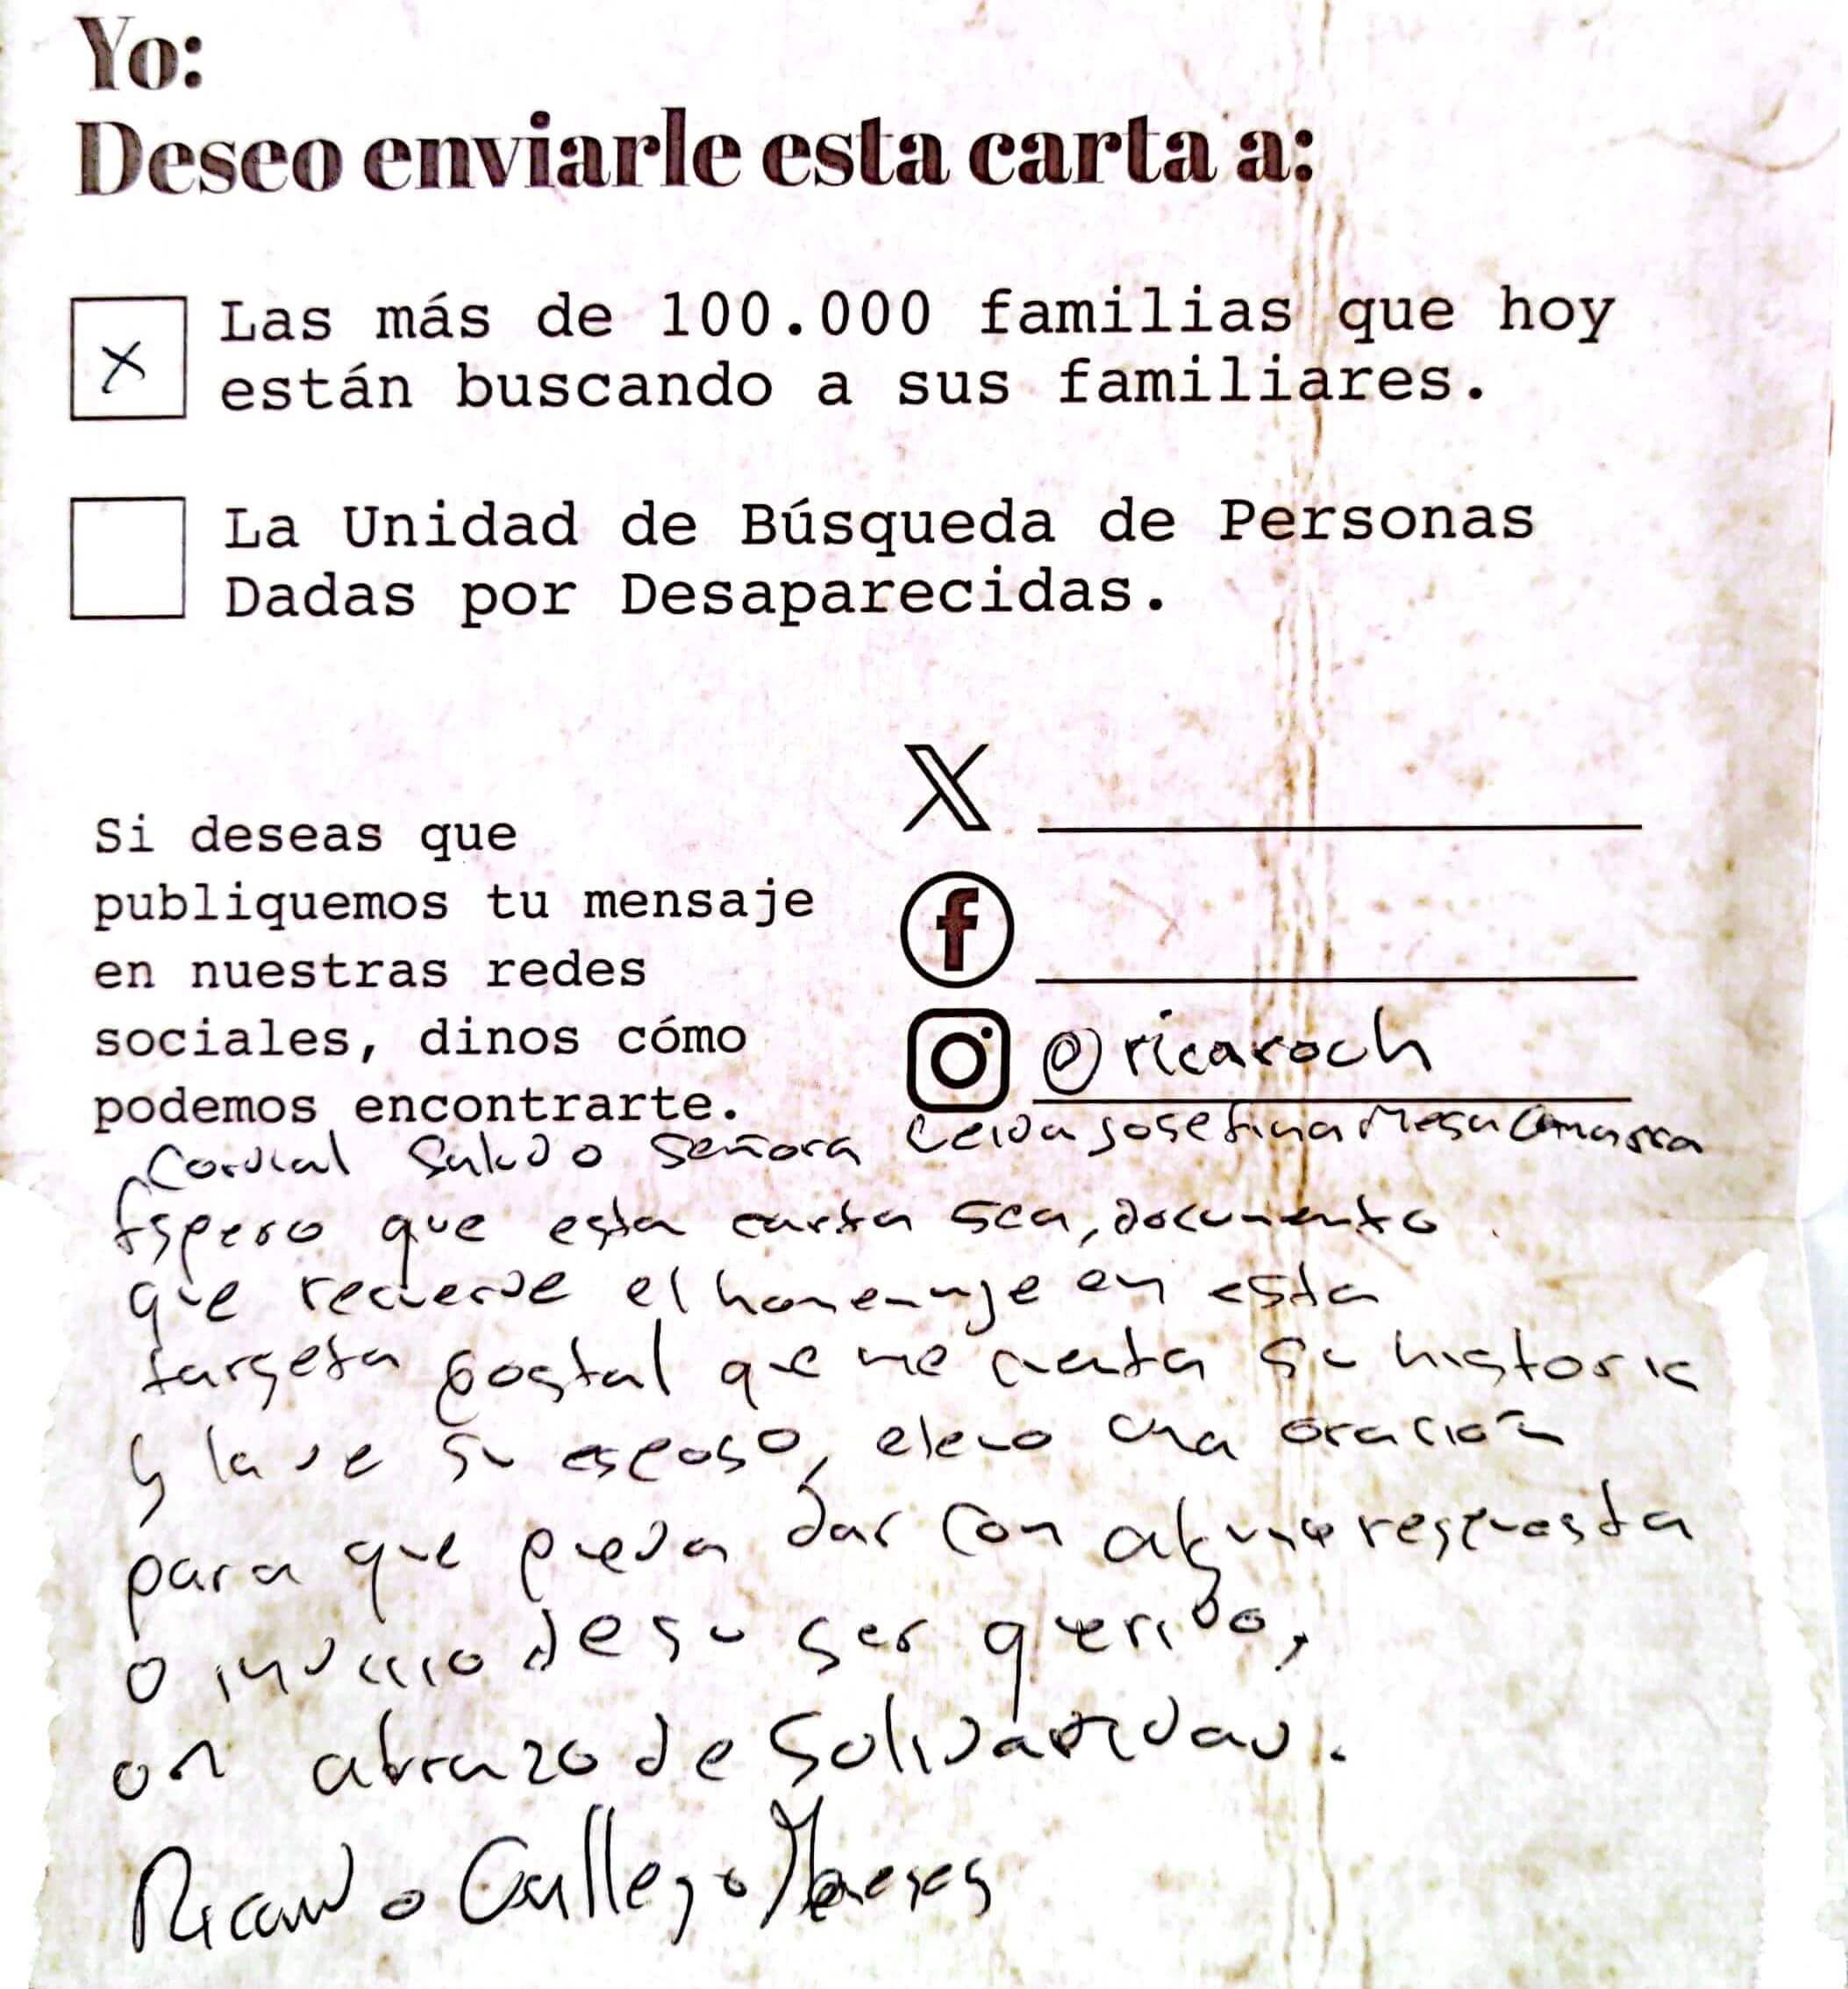 Yo:
Deseo enviarle esta carta a:
X Las más de 100.000 familias que hoy
están buscando a sus familiares.
La Unidad de Búsqueda de Personas
Dadas por Desaparecidas.
X
Si deseas que
publiquemos tu mensaje
en nuestras redes
sociales, dinos cómo
podemos encontrarte.
f
@ricaroch
Cordial Saludo Señora Leida Josefina Mesa
Espero que esta carta sea, documento
que recuerde el homenaje en esta
targeta postal que me cuenta su historia
y la de su esposo, elevo una oración
para que pueda dar con alguna respuesta
o indicio de su ser querido,
un abrazo de Solidaridad.
Ricardo Gallego